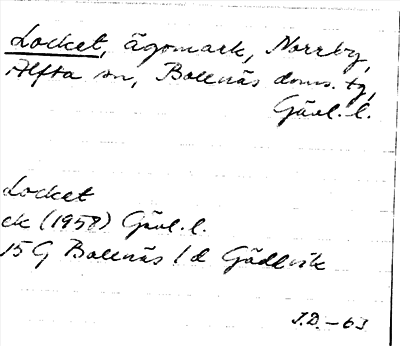 Locket, ägomark, Norrby,
Alfta sn, Bollnäs doms. tg,
Gävl. l.
Locket
ck (1958) Gävl. l.
15 G Bollnäs 1 d Gädvik
J.D. – 63